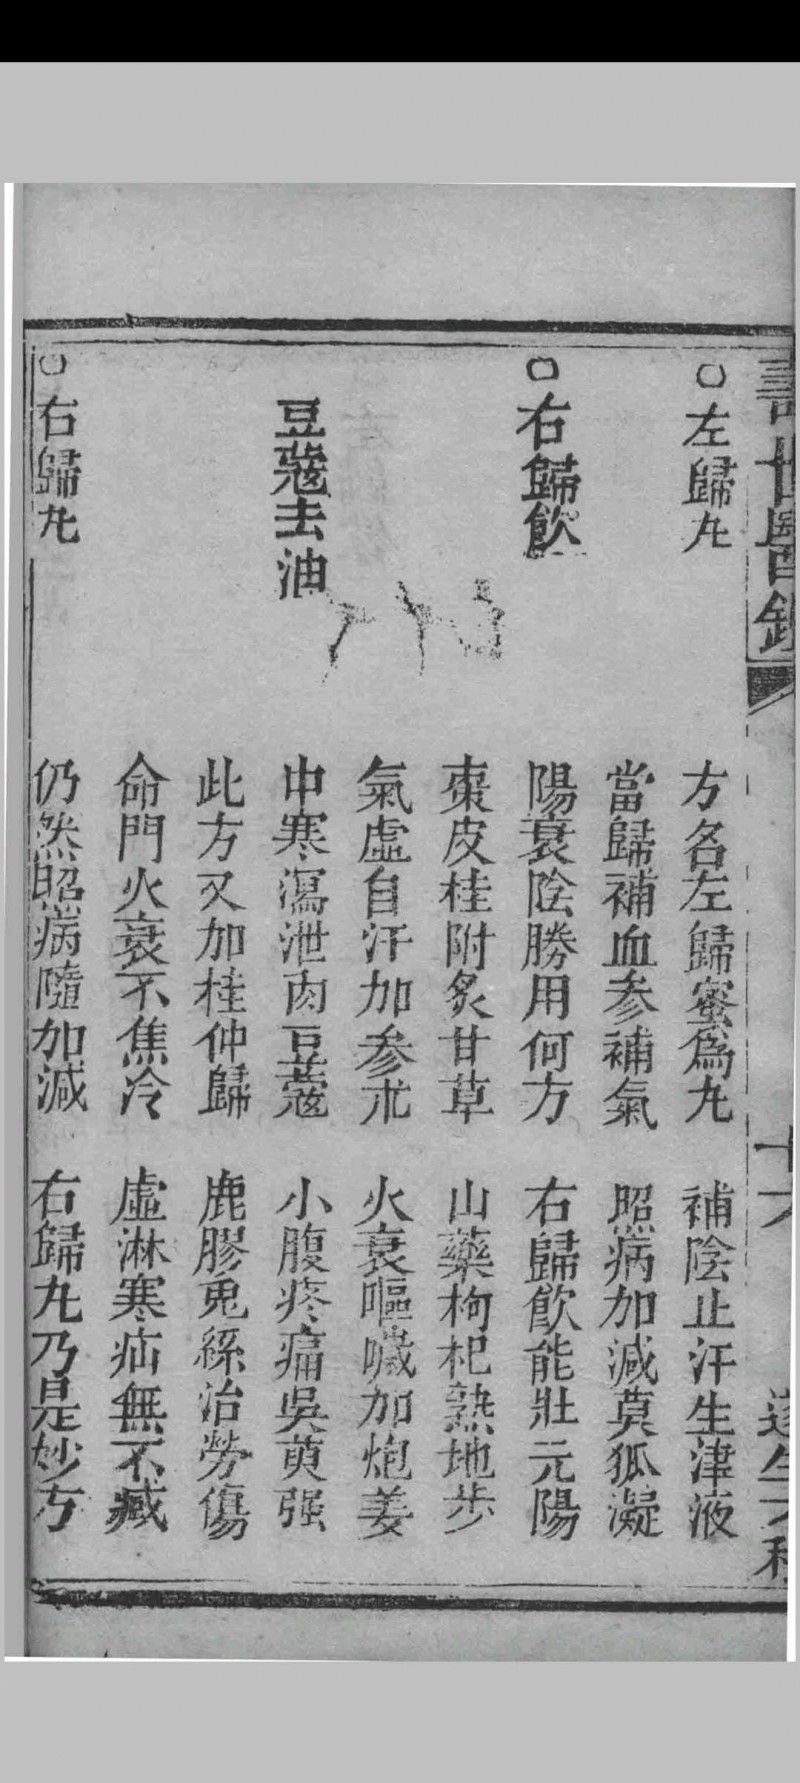 壽世醫
○左歸丸
方名左歸蜜爲丸　補陰止汗生津液
當歸補血参補氣　照病加減莫狐凝
○右歸飲
陽衰陰勝用何方　右歸飲能壯元陽
棗皮桂附炙甘草　山藥枸杞熟地步
氣虛自汗加参朮　火衰嘔噦加炮姜
豆蔻去油
中寒瀉泄肉豆蔻　小腹疼痛吳萸强
此方又加桂仲歸　鹿膠兎絲治勞傷
命門火衰不焦冷　虛淋寒疝無不臧
○右歸丸
仍然照病隨加減　右歸丸乃是妙方